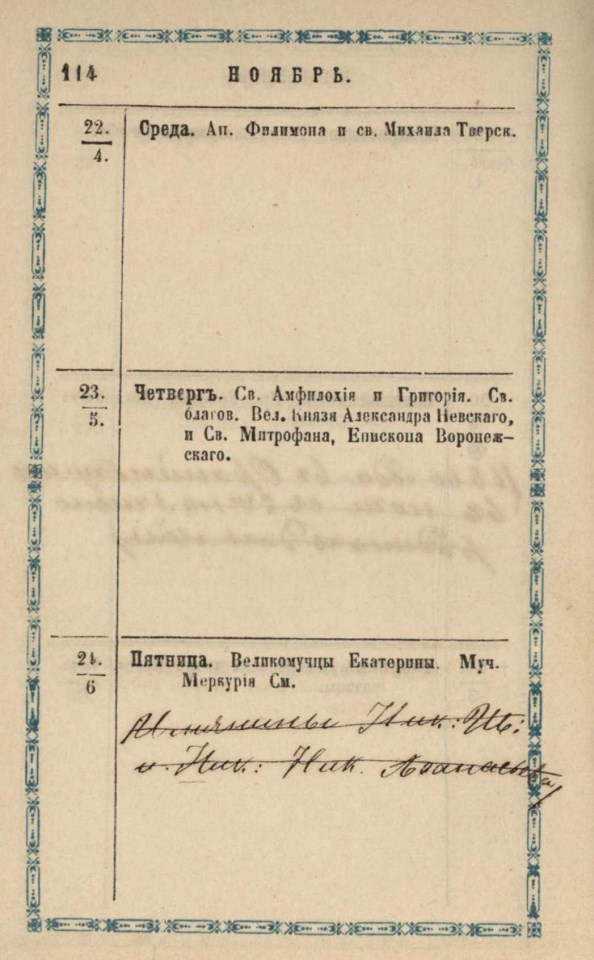 114
НОЯБРЬ.
22.
4.
Среда. Ап. Филимона и св. Михаила Тверск.
23.
5.
Четвергъ. Св. Амфилохія и Григорія. Св.
благов. Вел. Князя Александра Невскаго,
и Св. Митрофана, Епископа Воронеж-
скаго.
24.
6
Пятница. Великомучцы Екатерины. Муч.
Меркурія См.
Имянины Ник:
и Ник: Ник.